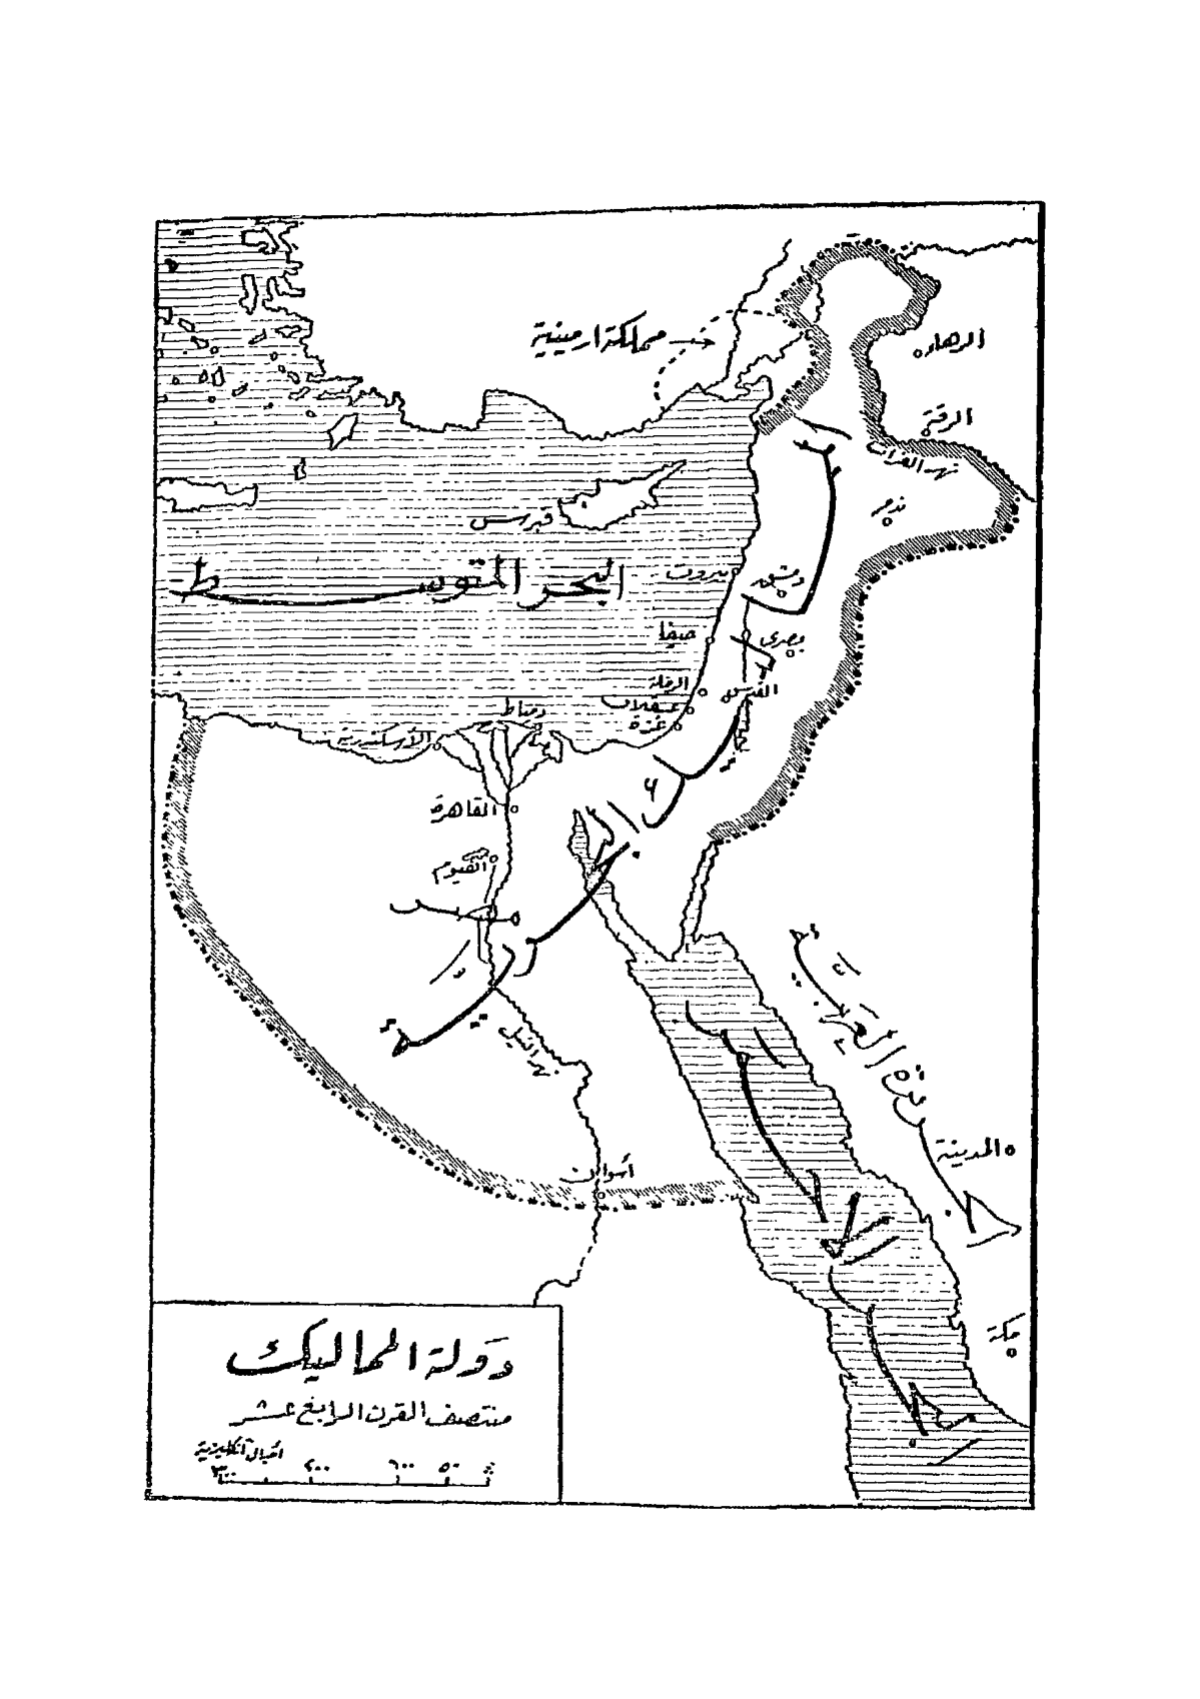 مملكة ارمينية
الرهاء
الرقة
نهر الفرات
تدمر
قبرس
البحر المتوسط
بيروت
دمشق
حيفا
بصرى
الرملة
القدس
عسقلان
غزة
دمياط
الأسكندرية
القاهرة
الفيوم
مصر
نهر النيل
أسوان
المدينة
مكة
البحر الأحمر
دولة المماليك
منتصف القرن الرابع عشر
أميال انكليزية